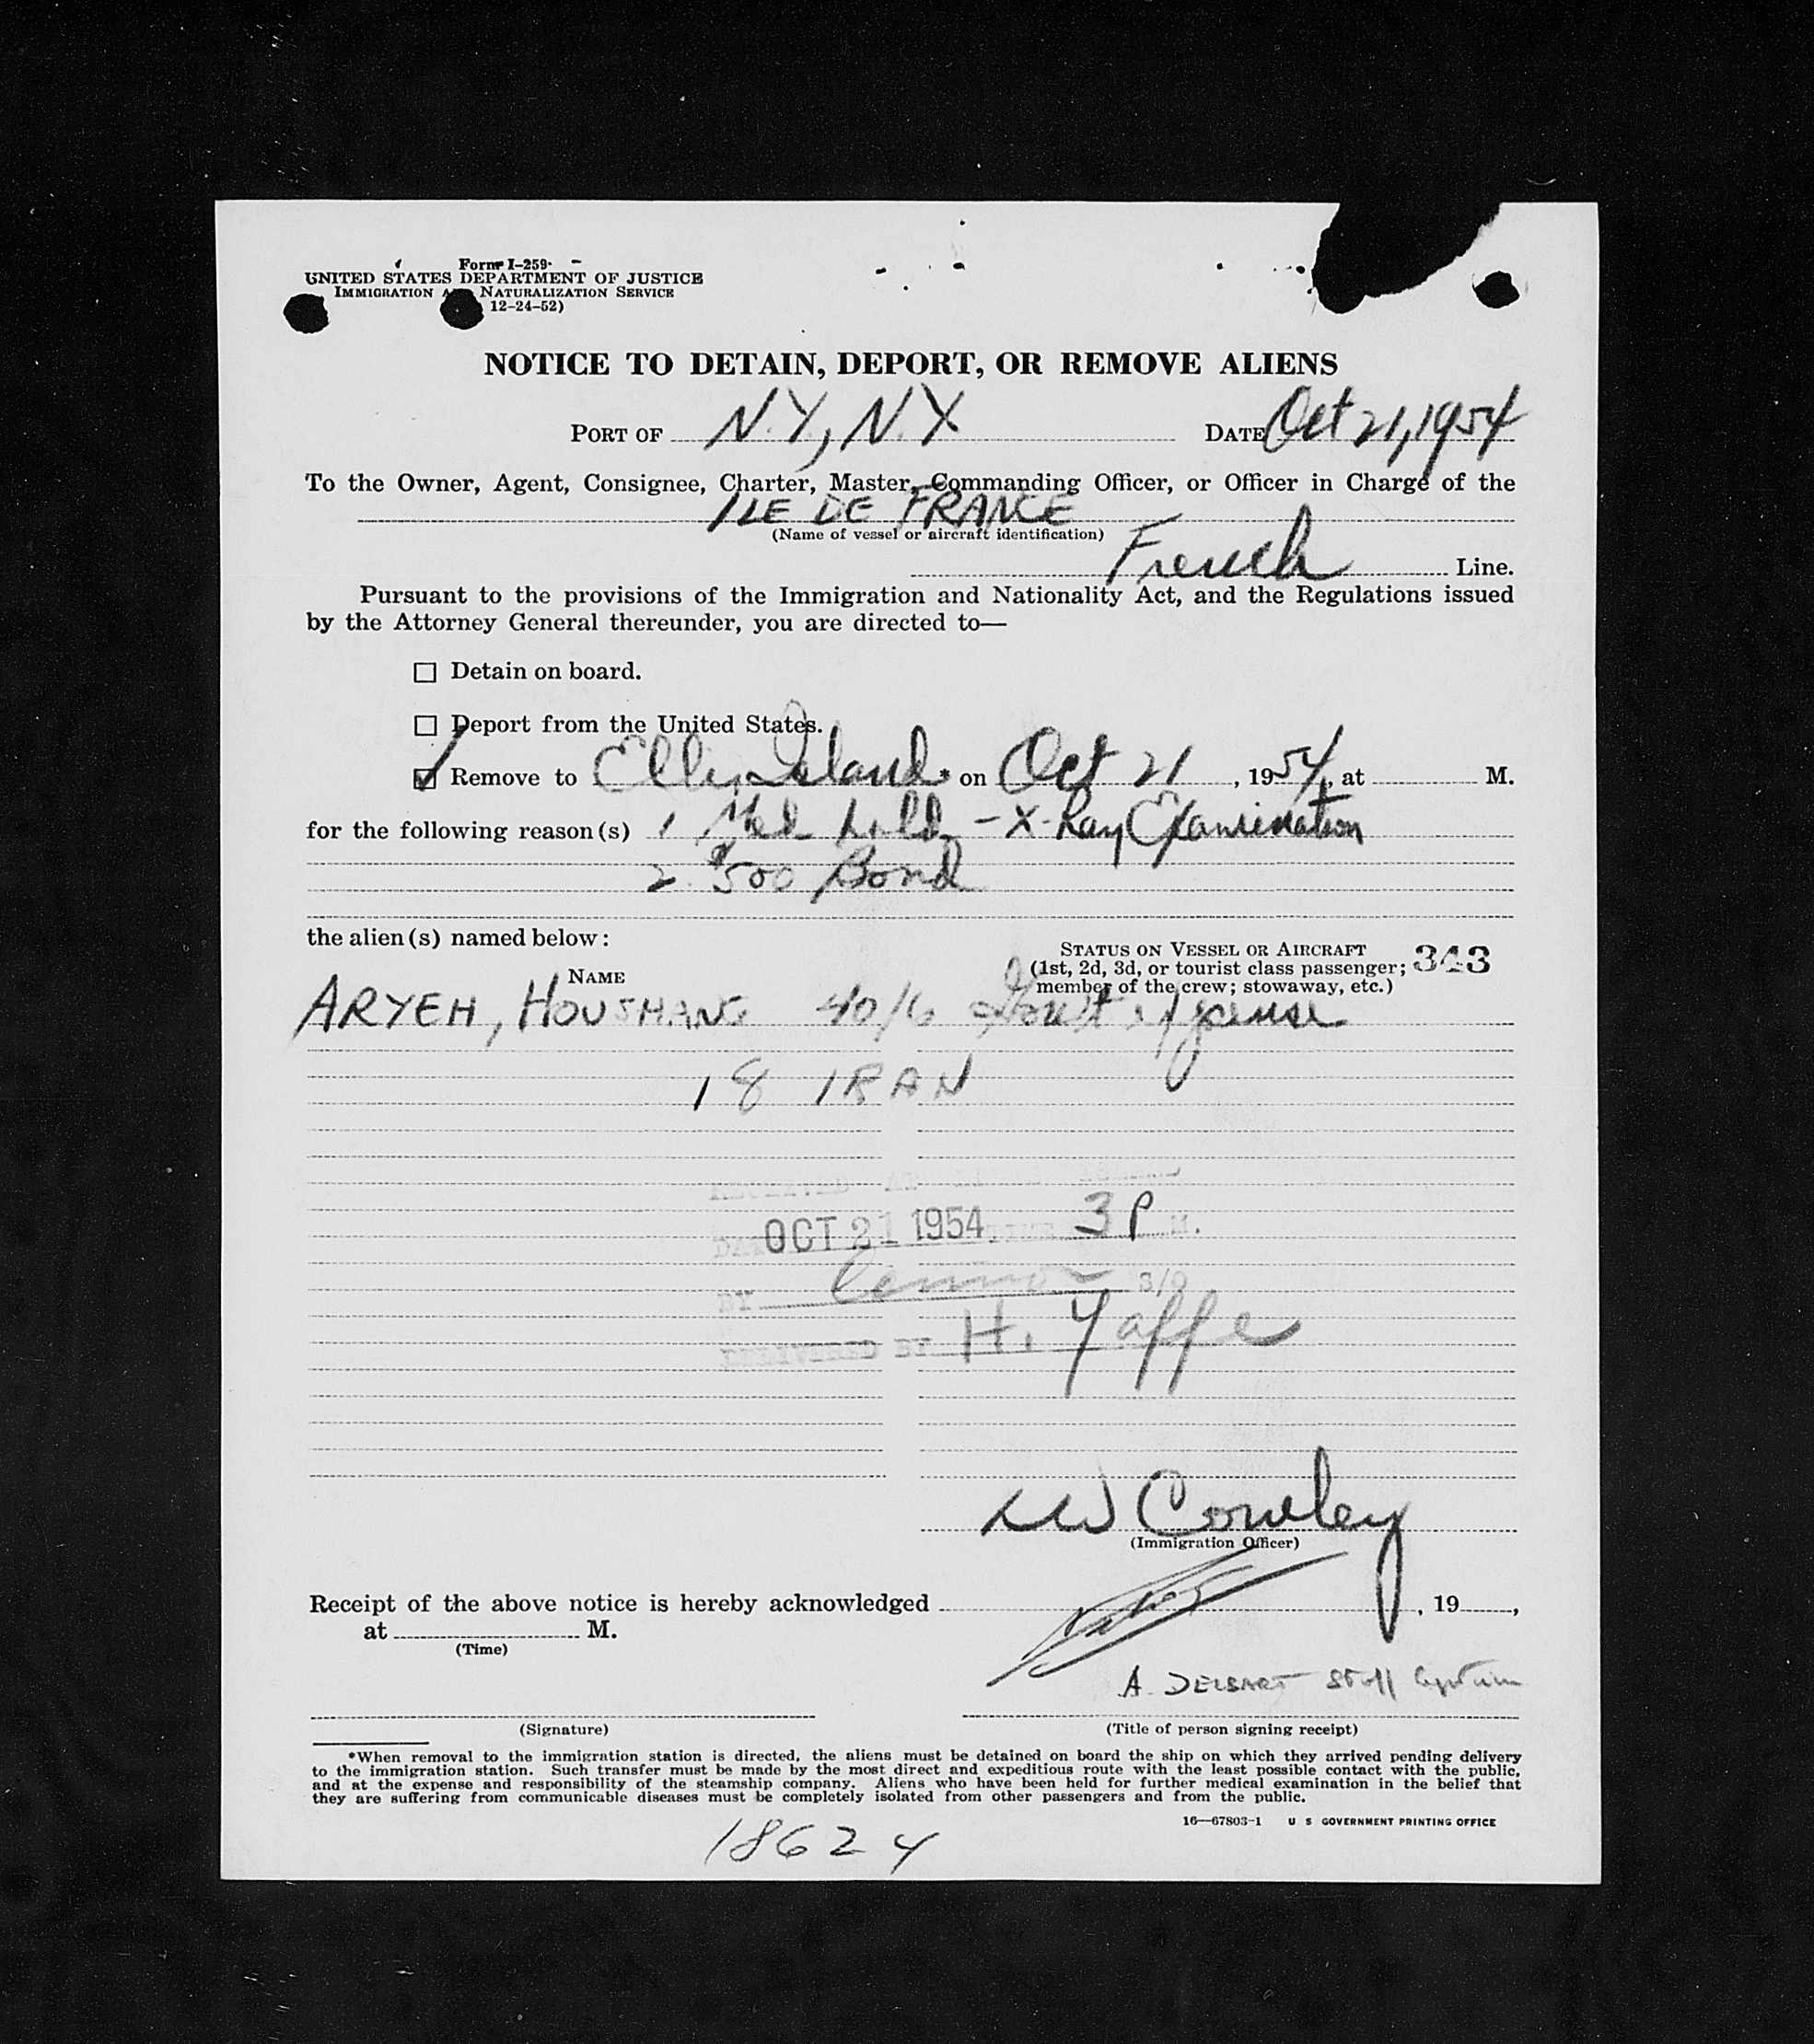 Form I-259
UNITED STATES DEPARTMENT OF JUSTICE
IMMIGRATION NATURALIZATION SERVICE
12-24-52)
NOTICE TO DETAIN, DEPORT, OR REMOVE ALIENS
PORT OF N.Y., N.Y. DATE Oct 21, 1954
To the Owner, Agent, Consignee, Charter, Master, Commanding Officer, or Officer in Charge of the
ILE DE FRANCE
(Name of vessel or aircraft identification)
French Line.
Pursuant to the provisions of the Immigration and Nationality Act, and the Regulations issued
by the Attorney General thereunder, you are directed to—
☐ Detain on board.
☐ Deport from the United States.
☑ Remove to Ellis Island * on Oct 21, 1954, at M.
for the following reason(s) 1 Med hold - X-Ray Examination
2. $500 Bond
the alien(s) named below:
STATUS ON VESSEL OR AIRCRAFT
(1st, 2d, 3d, or tourist class passenger; 343
NAME
member of the crew; stowaway, etc.)
ARYEH, HOUSHANG 40/6 Gov't expense
18 IRAN
RECEIVED AT
DATE OCT 21 1954 TIME 3 P M.
BY S/O
DELIVERED BY H. Yaffe
Cowley
(Immigration Officer)
Receipt of the above notice is hereby acknowledged , 19 ,
at M.
(Time)
A. DELSART Staff Captain
(Signature)
(Title of person signing receipt)
*When removal to the immigration station is directed, the aliens must be detained on board the ship on which they arrived pending delivery
to the immigration station. Such transfer must be made by the most direct and expeditious route with the least possible contact with the public,
and at the expense and responsibility of the steamship company. Aliens who have been held for further medical examination in the belief that
they are suffering from communicable diseases must be completely isolated from other passengers and from the public.
16—67803-1 U S GOVERNMENT PRINTING OFFICE
18624